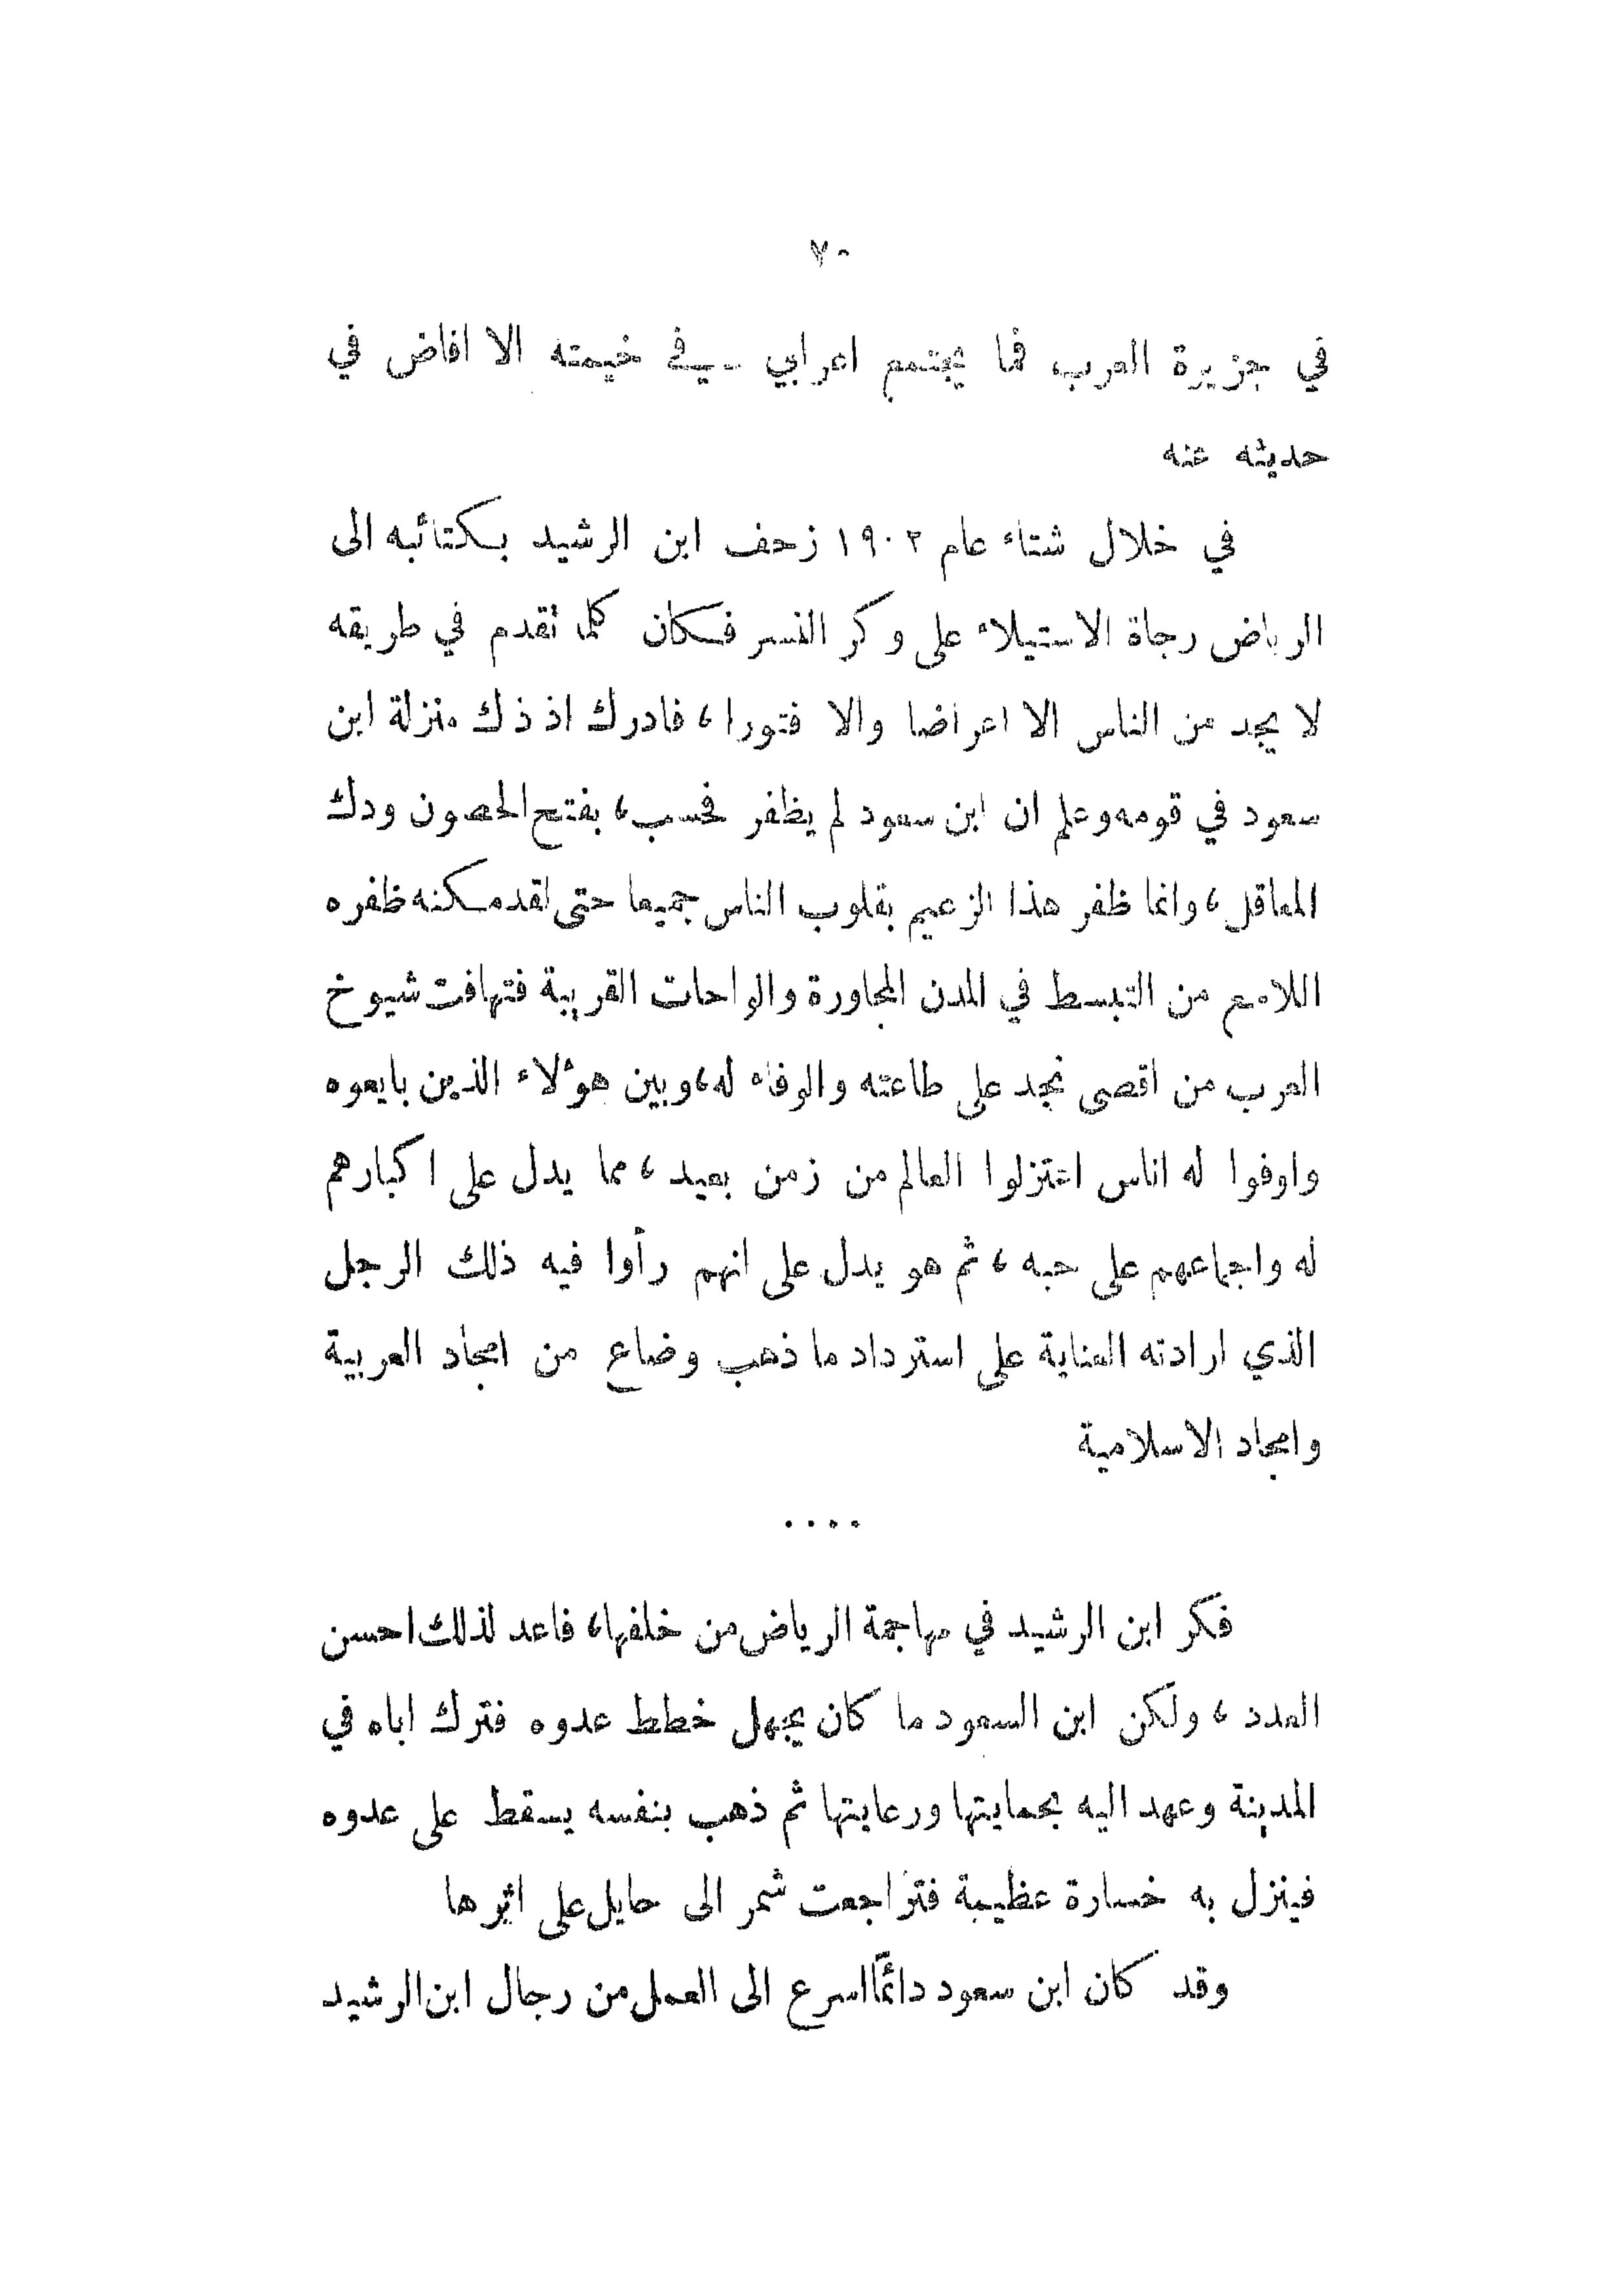 ٧٠
في جزيرة العرب فما يجتمع اعرابي في خيمته الا افاض في
حديثه عنه
في خلال شتاء عام ١٩٠٢ زحف ابن الرشيد بكتائبه الى
الرياض رجاة الاستيلاء على وكر النسر فكان كلما تقدم في طريقه
لا يجد من الناس الا اعراضا والا فتورا، فادرك اذ ذك منزلة ابن
سعود في قومه وعلم ان ابن سعود لم يظفر فحسب، بفتح الحصون ودك
المعاقل، وانما ظفر هذا الزعيم بقلوب الناس جميعا حتى لقد مكنه ظفره
اللامع من التبسط في المدن المجاورة والواحات القريبة فتهافت شيوخ
العرب من اقصى نجد على طاعته والوفاء له، وبين هؤلاء الذين بايعوه
واوفوا له اناس اعتزلوا العالم من زمن بعيد، مما يدل على اكبارهم
له واجماعهم على حبه، ثم هو يدل على انهم رأوا فيه ذلك الرجل
الذي ارادته العناية على استرداد ما ذهب وضاع من امجاد العربية
وامجاد الاسلامية
....
فكر ابن الرشيد في مهاجمة الرياض من خلفها، فاعد لذلك احسن
العدد، ولكن ابن السعود ما كان يجهل خطط عدوه فترك اباه في
المدينة وعهد اليه بحمايتها ورعايتها ثم ذهب بنفسه يسقط على عدوه
فينزل به خسارة عظيمة فتراجعت شمر الى حايل على اثرها
وقد كان ابن سعود دائمًا اسرع الى العمل من رجال ابن الرشيد